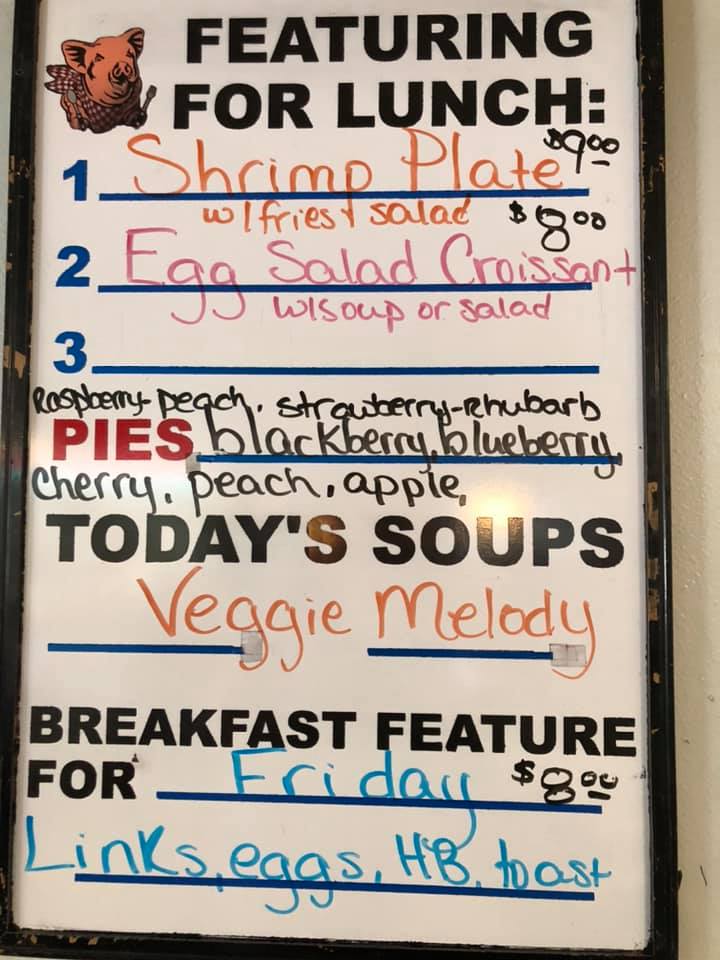 FEATURING
FOR LUNCH:
1 Shrimp Plate $9.00
w/fries & salad $8.00
2 Egg Salad Croissant
w/soup or salad
3
Raspberry-peach, strawberry-rhubarb
PIES blackberry, blueberry,
cherry, peach, apple,
TODAY'S SOUPS
Veggie Melody
BREAKFAST FEATURE
FOR Friday $8.00
Links, eggs, HB, toast